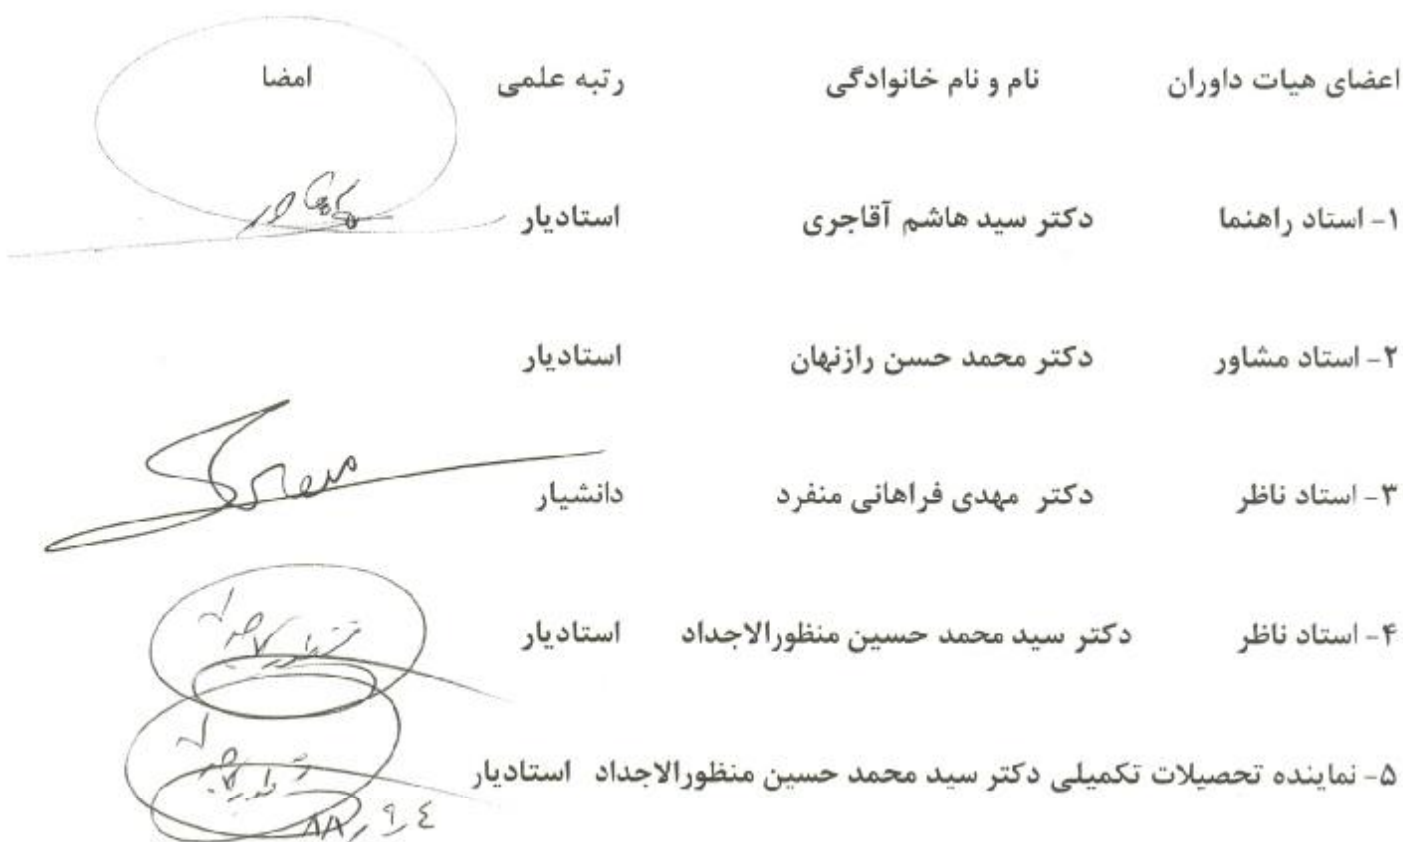 اعضای هیات داوران نام و نام خانوادگی رتبه علمی امضا
۱- استاد راهنما دکتر سید هاشم آقاجری استادیار
۲- استاد مشاور دکتر محمد حسن رازنهان استادیار
۳- استاد ناظر دکتر مهدی فراهانی منفرد دانشیار
۴- استاد ناظر دکتر سید محمد حسین منظورالاجداد استادیار
۵- نماینده تحصیلات تکمیلی دکتر سید محمد حسین منظورالاجداد استادیار
۸۸٫۹٫٤